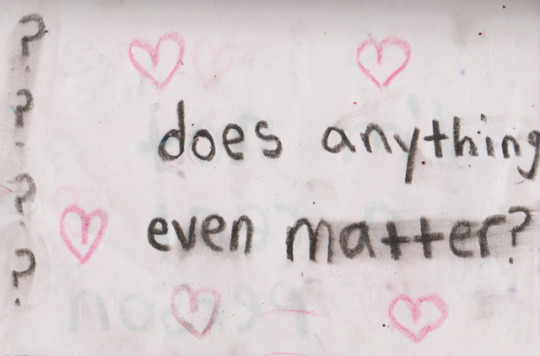 ?
?
?
?
does anything
even matter?